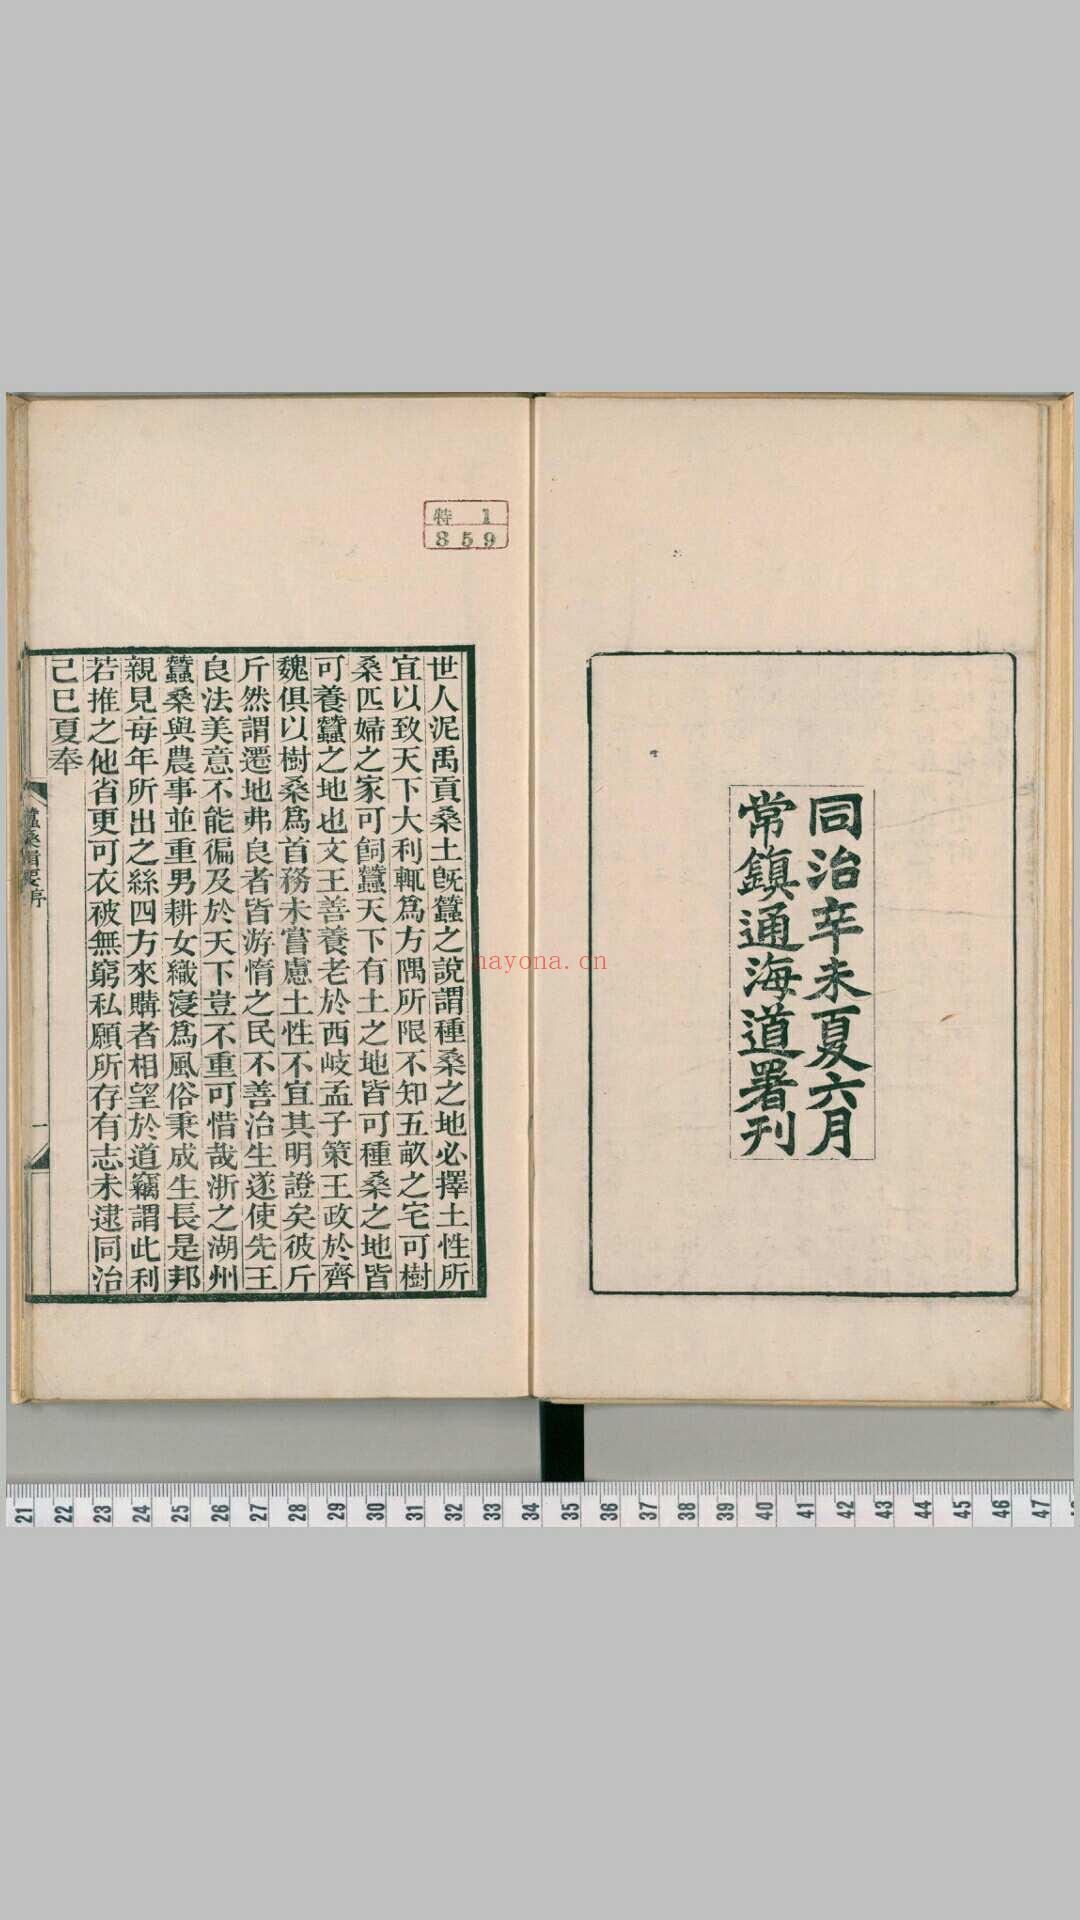 同治辛未夏六月
常鎮通海道署刊
特 1
859
世人泥禹貢桑土旣蠶之說謂種桑之地必擇土性所
宜以致天下大利輒爲方隅所限不知五畝之宅可樹
桑匹婦之家可飼蠶天下有土之地皆可種桑之地皆
可養蠶之地也文王善養老於西岐孟子策王政於齊
魏俱以樹桑爲首務未嘗慮土性不宜其明證矣彼斤
斤然謂遷地弗良者皆游惰之民不善治生遂使先王
良法美意不能徧及於天下豈不重可惜哉浙之湖州
蠶桑與農事並重男耕女織寖爲風俗秉成生長是邦
親見每年所出之絲四方來購者相望於道竊謂此利
若推之他省更可衣被無窮私願所存有志未逮同治
己巳夏奉
蠶桑輯要序
一
nayona.cn
21 22 23 24 25 26 27 28 29 30 31 32 33 34 35 36 37 38 39 40 41 42 43 44 45 46 47